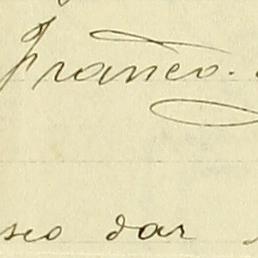 Franco.
seo dar